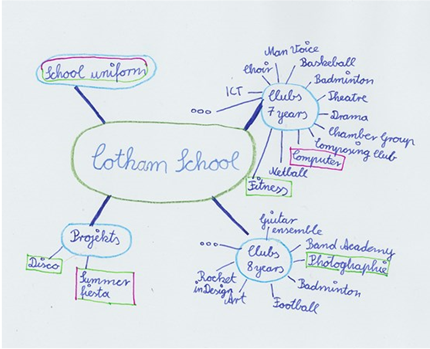 School uniform
Cotham School
Man Voice
Choir
Basketball
Badminton
ICT
Clubs
7 years
Theatre
Drama
Chamber Group
Composing Club
Computer
Netball
Fitness
...
Projekts
Disco
Summer
fiesta
Clubs
8 years
Guitar
ensemble
Band Academy
Photographie
Badminton
Football
Art
Rocket
in Design
...